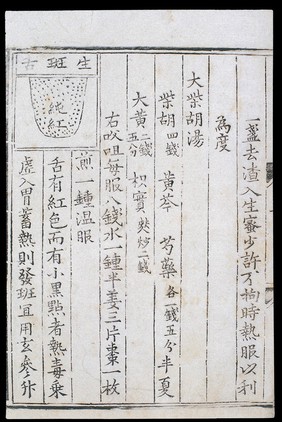 一盞去渣入生蜜少許不拘時熱服以利
為度
大柴胡湯
柴胡四錢 黃芩 芍藥各一錢五分 半夏
大黃二錢五分 枳實麩炒二錢
右㕮咀每服八錢水一鍾半姜三片棗一枚
煎一鍾溫服
生斑舌
純紅
舌有紅色而有小黑點者熱毒乗
虛入胃蓄熱則發斑宜用玄參升